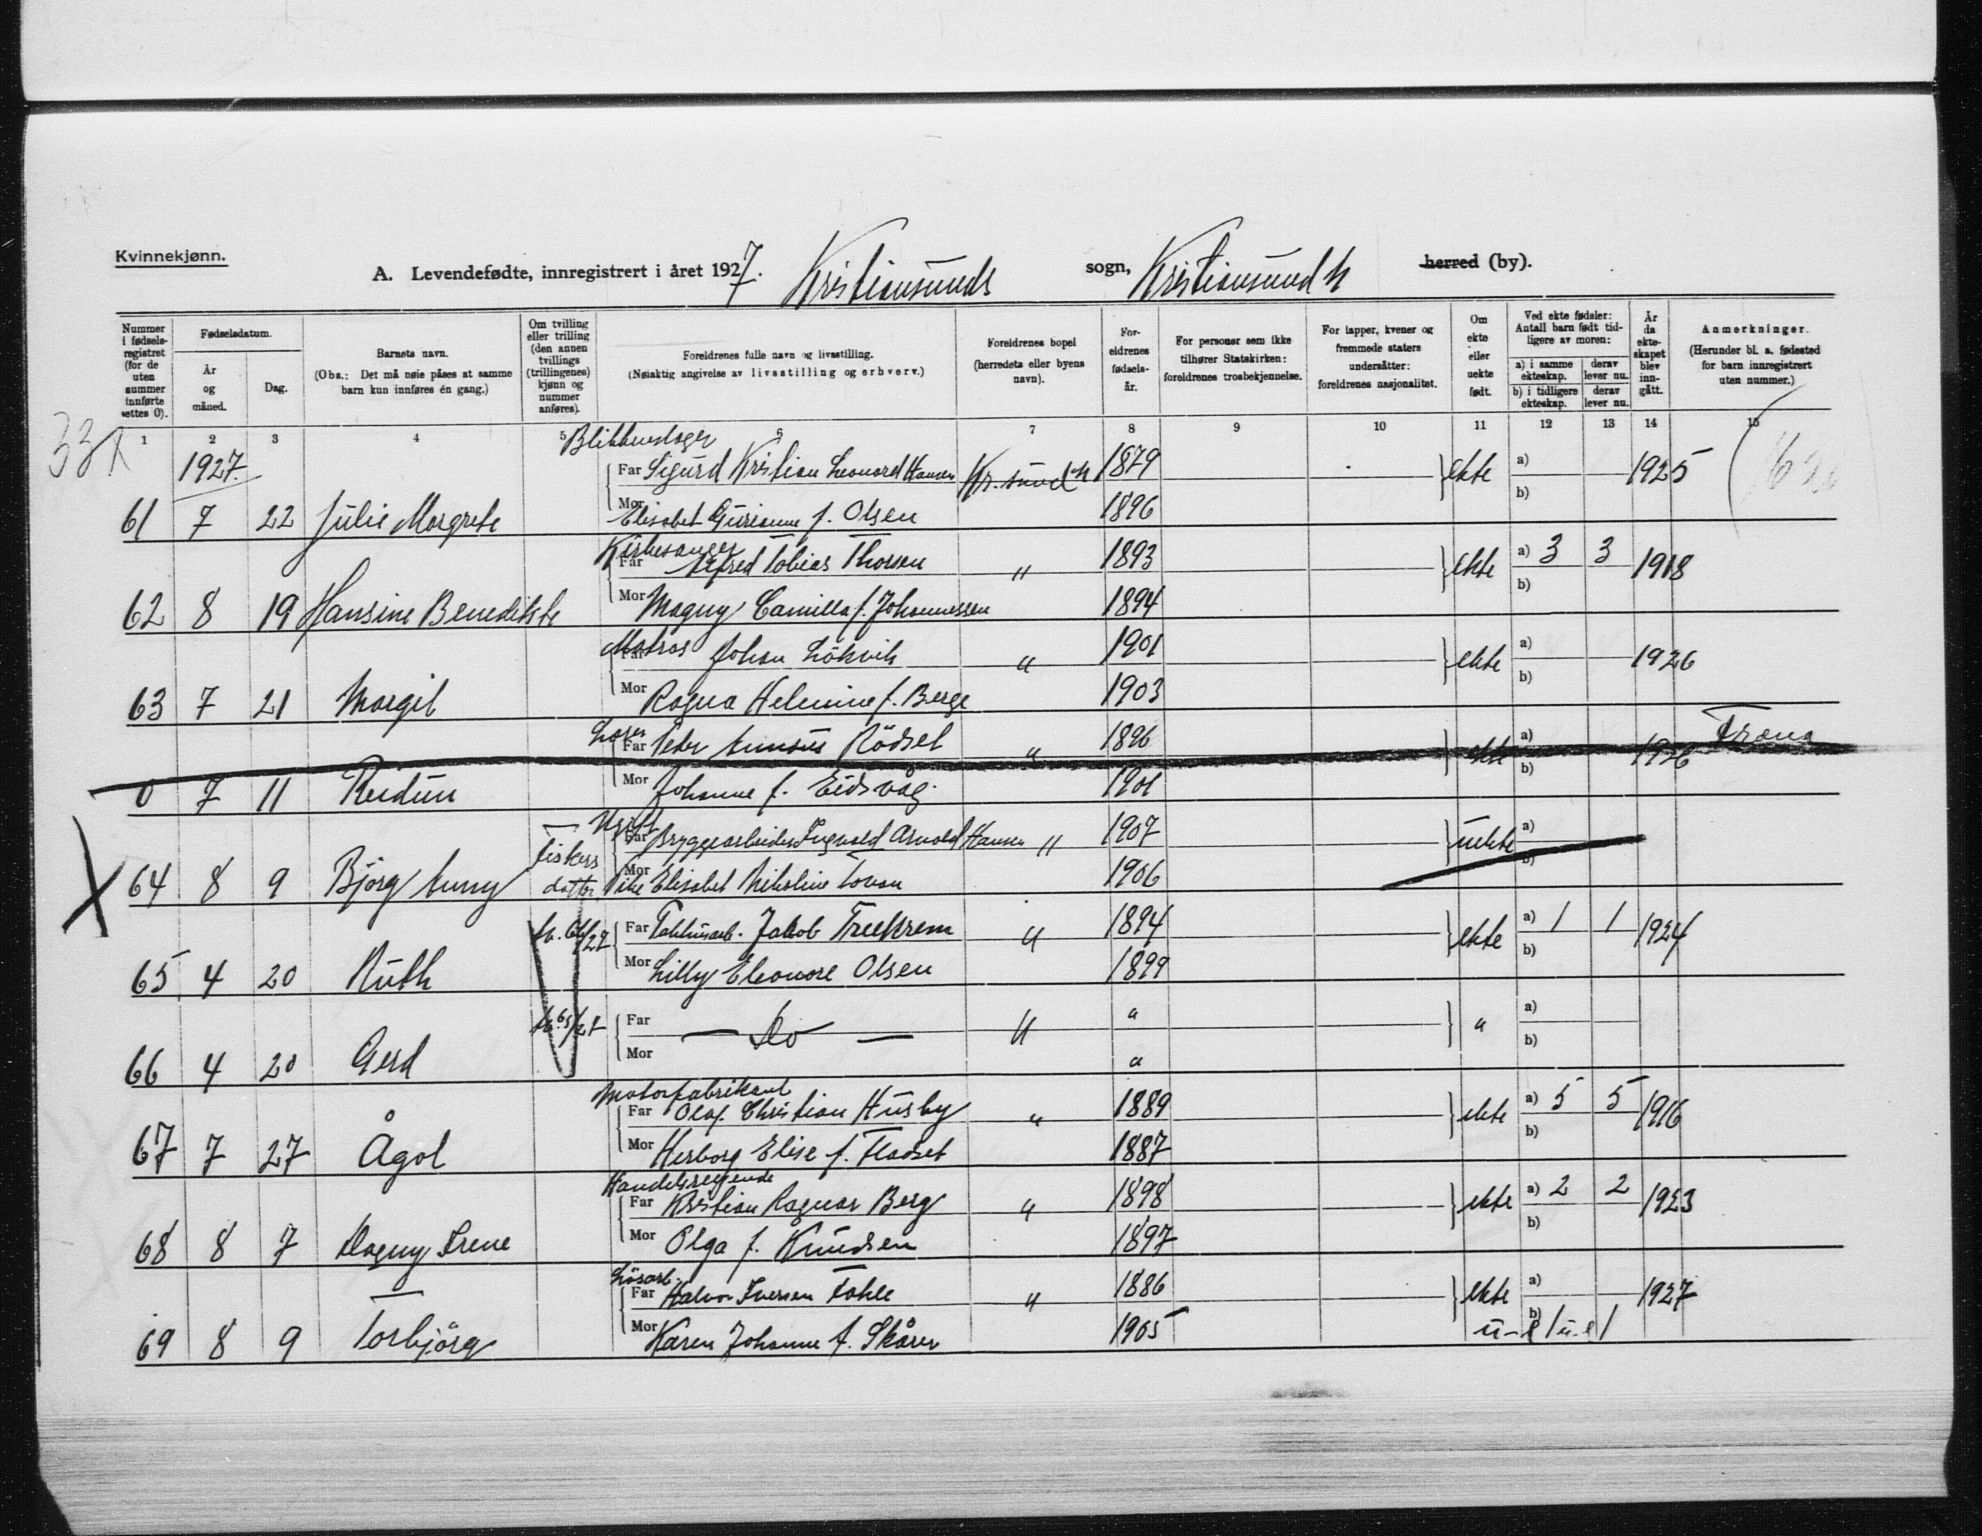 Kvinnekjønn.
A. Levendefødte, innregistrert i året 1927. Kristiansunds sogn, Kristiansund N herred (by).
Nummer i fødselsregistret (for de uten nummer innførte settes 0).
Fødselsdatum.
År og måned.
Dag.
Barnets navn.
(Obs.: Det må nøie påses at samme barn kun innføres én gang.)
Om tvilling eller trilling (den annen tvillings (trillingenes) kjønn og nummer anføres).
Foreldrenes fulle navn og livsstilling.
(Nøiaktig angivelse av livsstilling og erhverv.)
Foreldrenes bopel (herredets eller byens navn).
Foreldrenes fødselsår.
For personer som ikke tilhører Statskirken: foreldrenes trosbekjennelse.
For lapper, kvener og fremmede staters undersåtter: foreldrenes nasjonalitet.
Om ekte eller uekte født.
Ved ekte fødsler: Antall barn født tidligere av moren:
a) i samme ekteskap. derav lever nu.
b) i tidligere ekteskap. derav lever nu.
År da ekteskapet blev inngått.
Anmerkninger.
(Herunder bl. a. fødested for barn innregistrert uten nummer.)
1 2 3 4 5 6 7 8 9 10 11 12 13 14 15
1927.
Blikkenslager
Far Sigurd Kristian Leonard Hansen Kr.sund N 1879 ekte a) b) 1925
61 7 22 Julie Margrete Mor Elisabet Gurianne f. Olsen 1896
Kirkesanger
Far Alfred Tobias Thorsen " 1893 ekte a) 3 3 b) 1918
62 8 19 Hansine Benedikte Mor Magny Camilla f. Johannessen 1894
Matros
Far Johan Løkvik " 1901 ekte a) b) 1926
63 7 21 Margit Mor Ragna Helmine f. Berge 1903
Lærer
Far Peder Rødset " 1896 ekte a) b) 1926 Fræna
0 7 11 Reidun Mor Johanne f. Eidsvåg 1901
Ugift
Far Bryggearbeider Ingvald Arnold Hansen " 1907 uekte a) b)
64 8 9 Bjørg Anny Fiskers datter Mor Pike Elisabet Nikoline 1906
Far Jakob Treekrem " 1894 ekte a) 1 1 b) 1924
65 4 20 Ruth Mor Lilly Eleonore Olsen 1899
Far — Do — " " " a) b)
66 4 20 Gerd Mor "
Motorfabrikant
Far Olaf Christian Husby " 1889 ekte a) 5 5 b) 1916
67 7 27 Ågot Mor Herborg Elise f. Fladset 1887
Handelsreisende
Far Kristian Ragnar Berg " 1898 ekte a) 2 2 b) 1923
68 8 7 Dagny Irene Mor Olga f. Knudsen 1897
Løsarb.
Far Halvor Iversen Fahle " 1886 ekte a) b) 1927
69 8 9 Torbjørg Mor Karen Johanne f. Skårer 1905 u-e 1 u-e 1